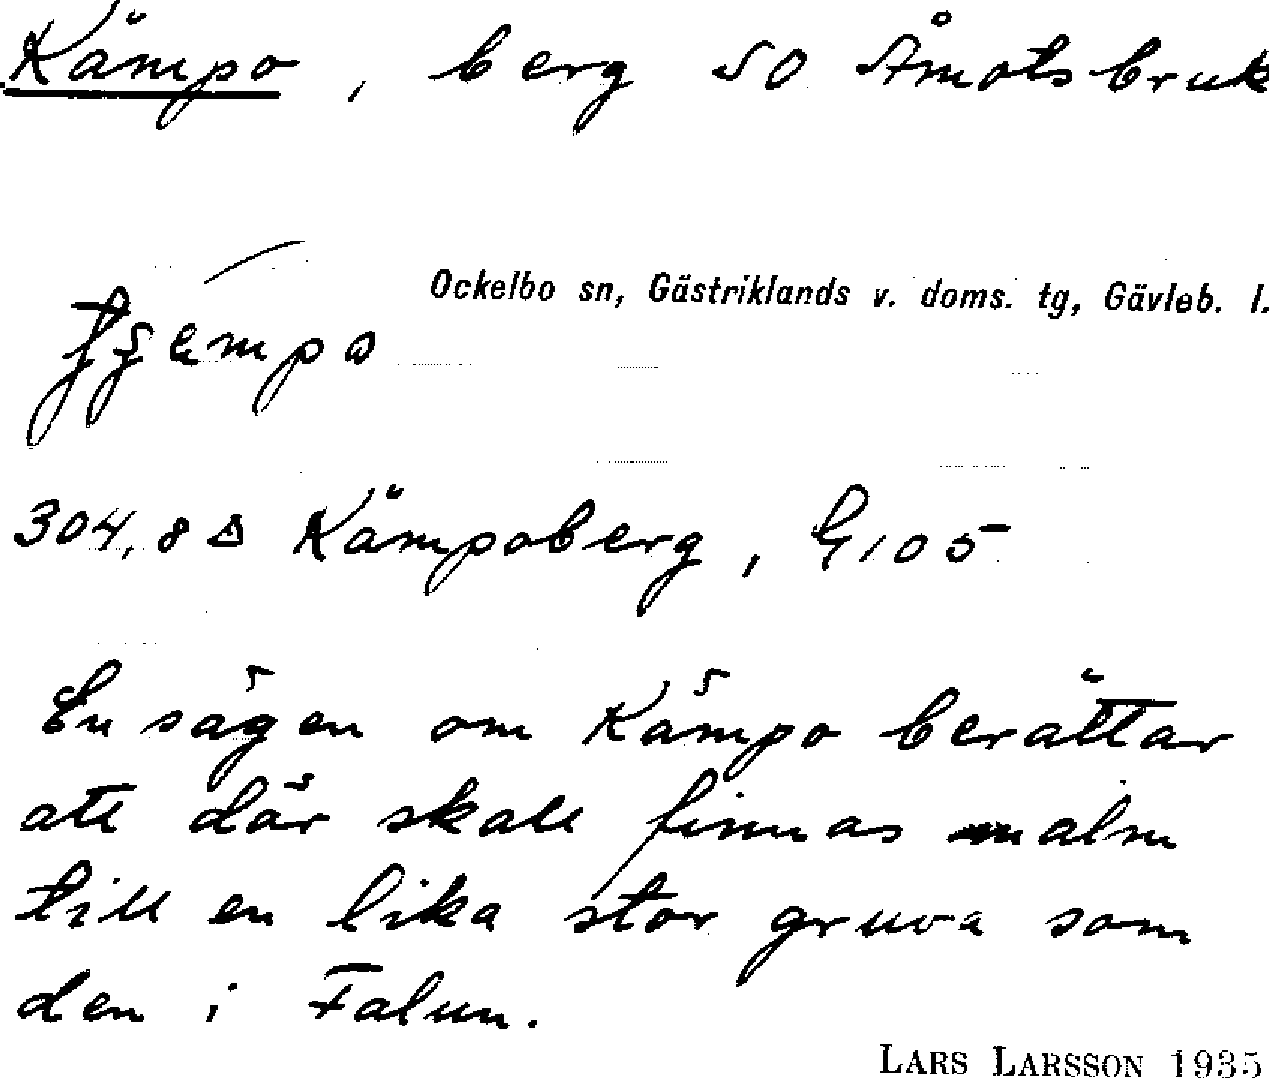 Kämpo, berg SO Åmotsbruk
Ockelbo sn, Gästriklands v. doms. tg, Gävleb. l.
304,8 Δ Kämpoberg, G105
En sägen om Kämpo berättar
att där skall finnas malm
till en lika stor gruva som
den i Falun.
LARS LARSSON 1935